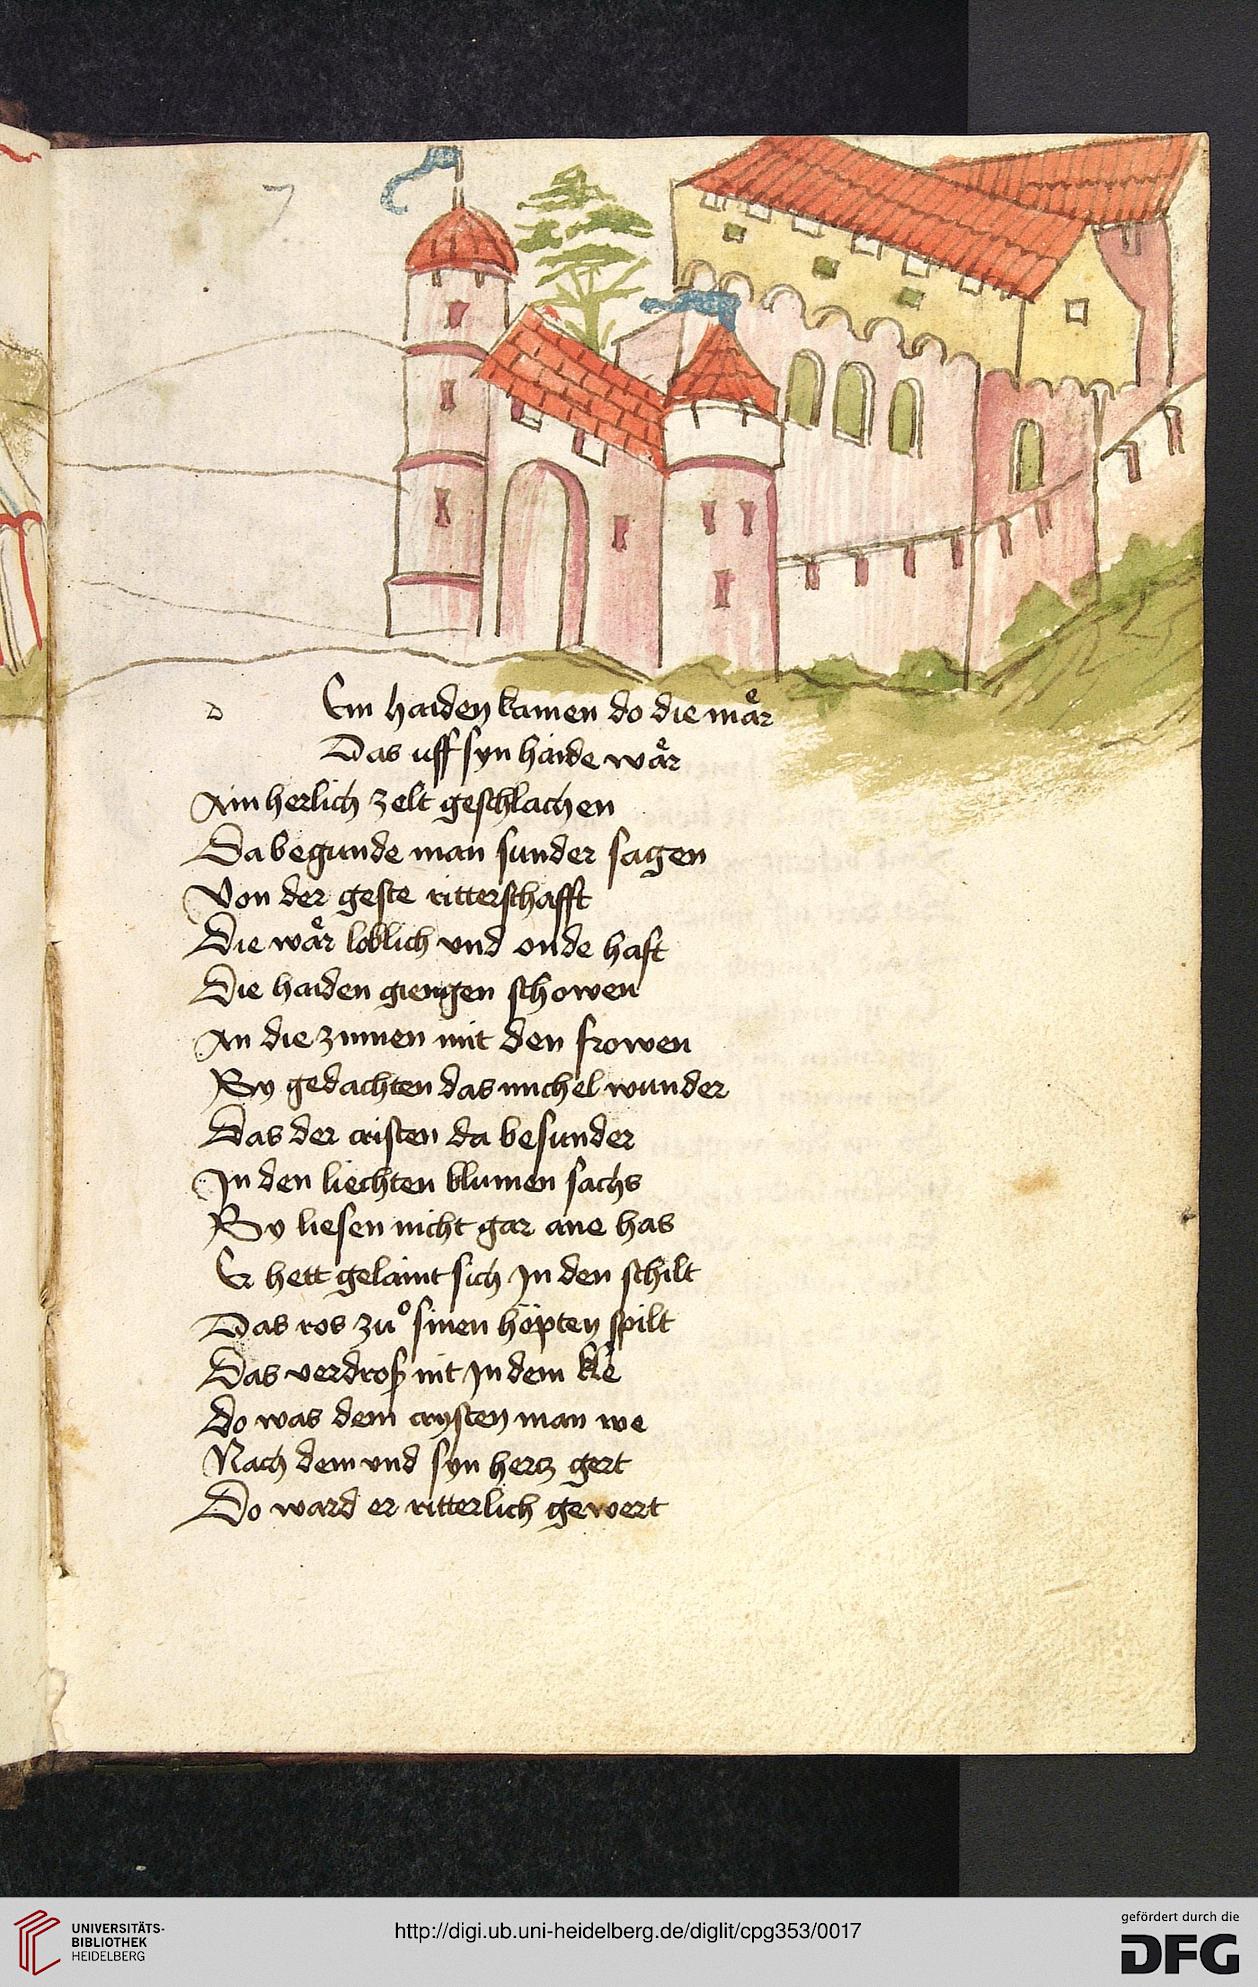 7
d Em haiden kamen do die maͤr
Das uff syn haide waͤr
Ain herlich zelt geschlachen
Da begunde man sunder sagen
Von der geste ritterschafft
Die waͤr loblich vnd onde haft
Die haiden giengen schowen
An die zinnen mit den frowen
Sy gedachten das michel wunder
Das der cristen da besunder
In den liechten blumen sachs
Sy liesen nicht gar ane has
Er hett gelaint sich In den schilt
Das ros zuͦ sinen höpten spilt
Das verdroß nit In dem kle
Do was dem crysten man we
Nach dem vnd syn hertz gert
Do ward er ritterlich gewert
UNIVERSITÄTS-
BIBLIOTHEK
HEIDELBERG
http://digi.ub.uni-heidelberg.de/diglit/cpg353/0017
gefördert durch die
DFG